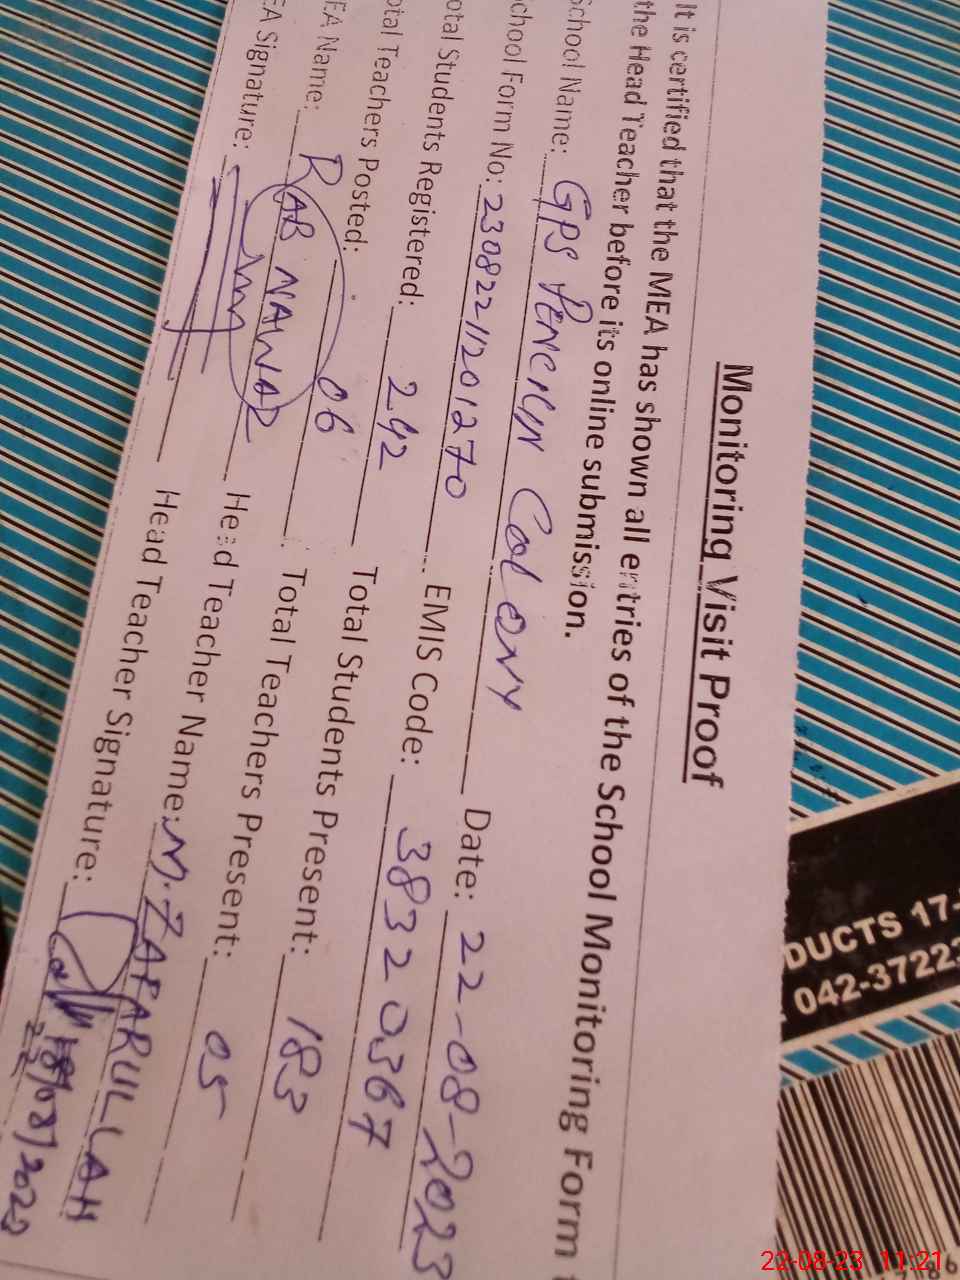 Monitoring Visit Proof
It is certified that the MEA has shown all entries of the School Monitoring Form
the Head Teacher before its online submission.
School Name: GPS Colony Date: 22-08-2023
chool Form No: 23082211201270 EMIS Code: 38320367
otal Students Registered: 292 Total Students Present: 183
otal Teachers Posted: 06 Total Teachers Present: 05
EA Name: RAB NAWAZ Head Teacher Name: M. ZAFARULLAH
EA Signature: Head Teacher Signature:
22/08/2023
DUCTS 17-
042-3722
22-08-23 11:21